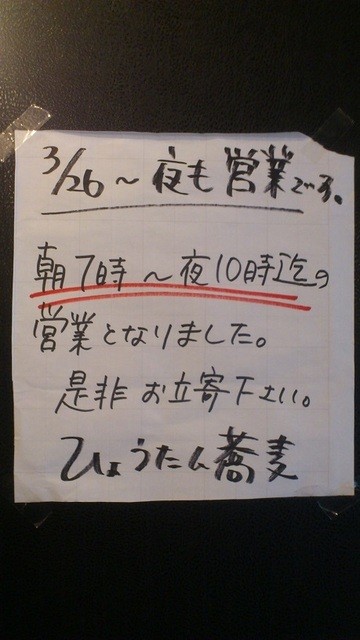 3/26～夜も営業です。
朝7時～夜10時迄の
営業となりました。
是非お立寄下さい。
ひょうたん蕎麦